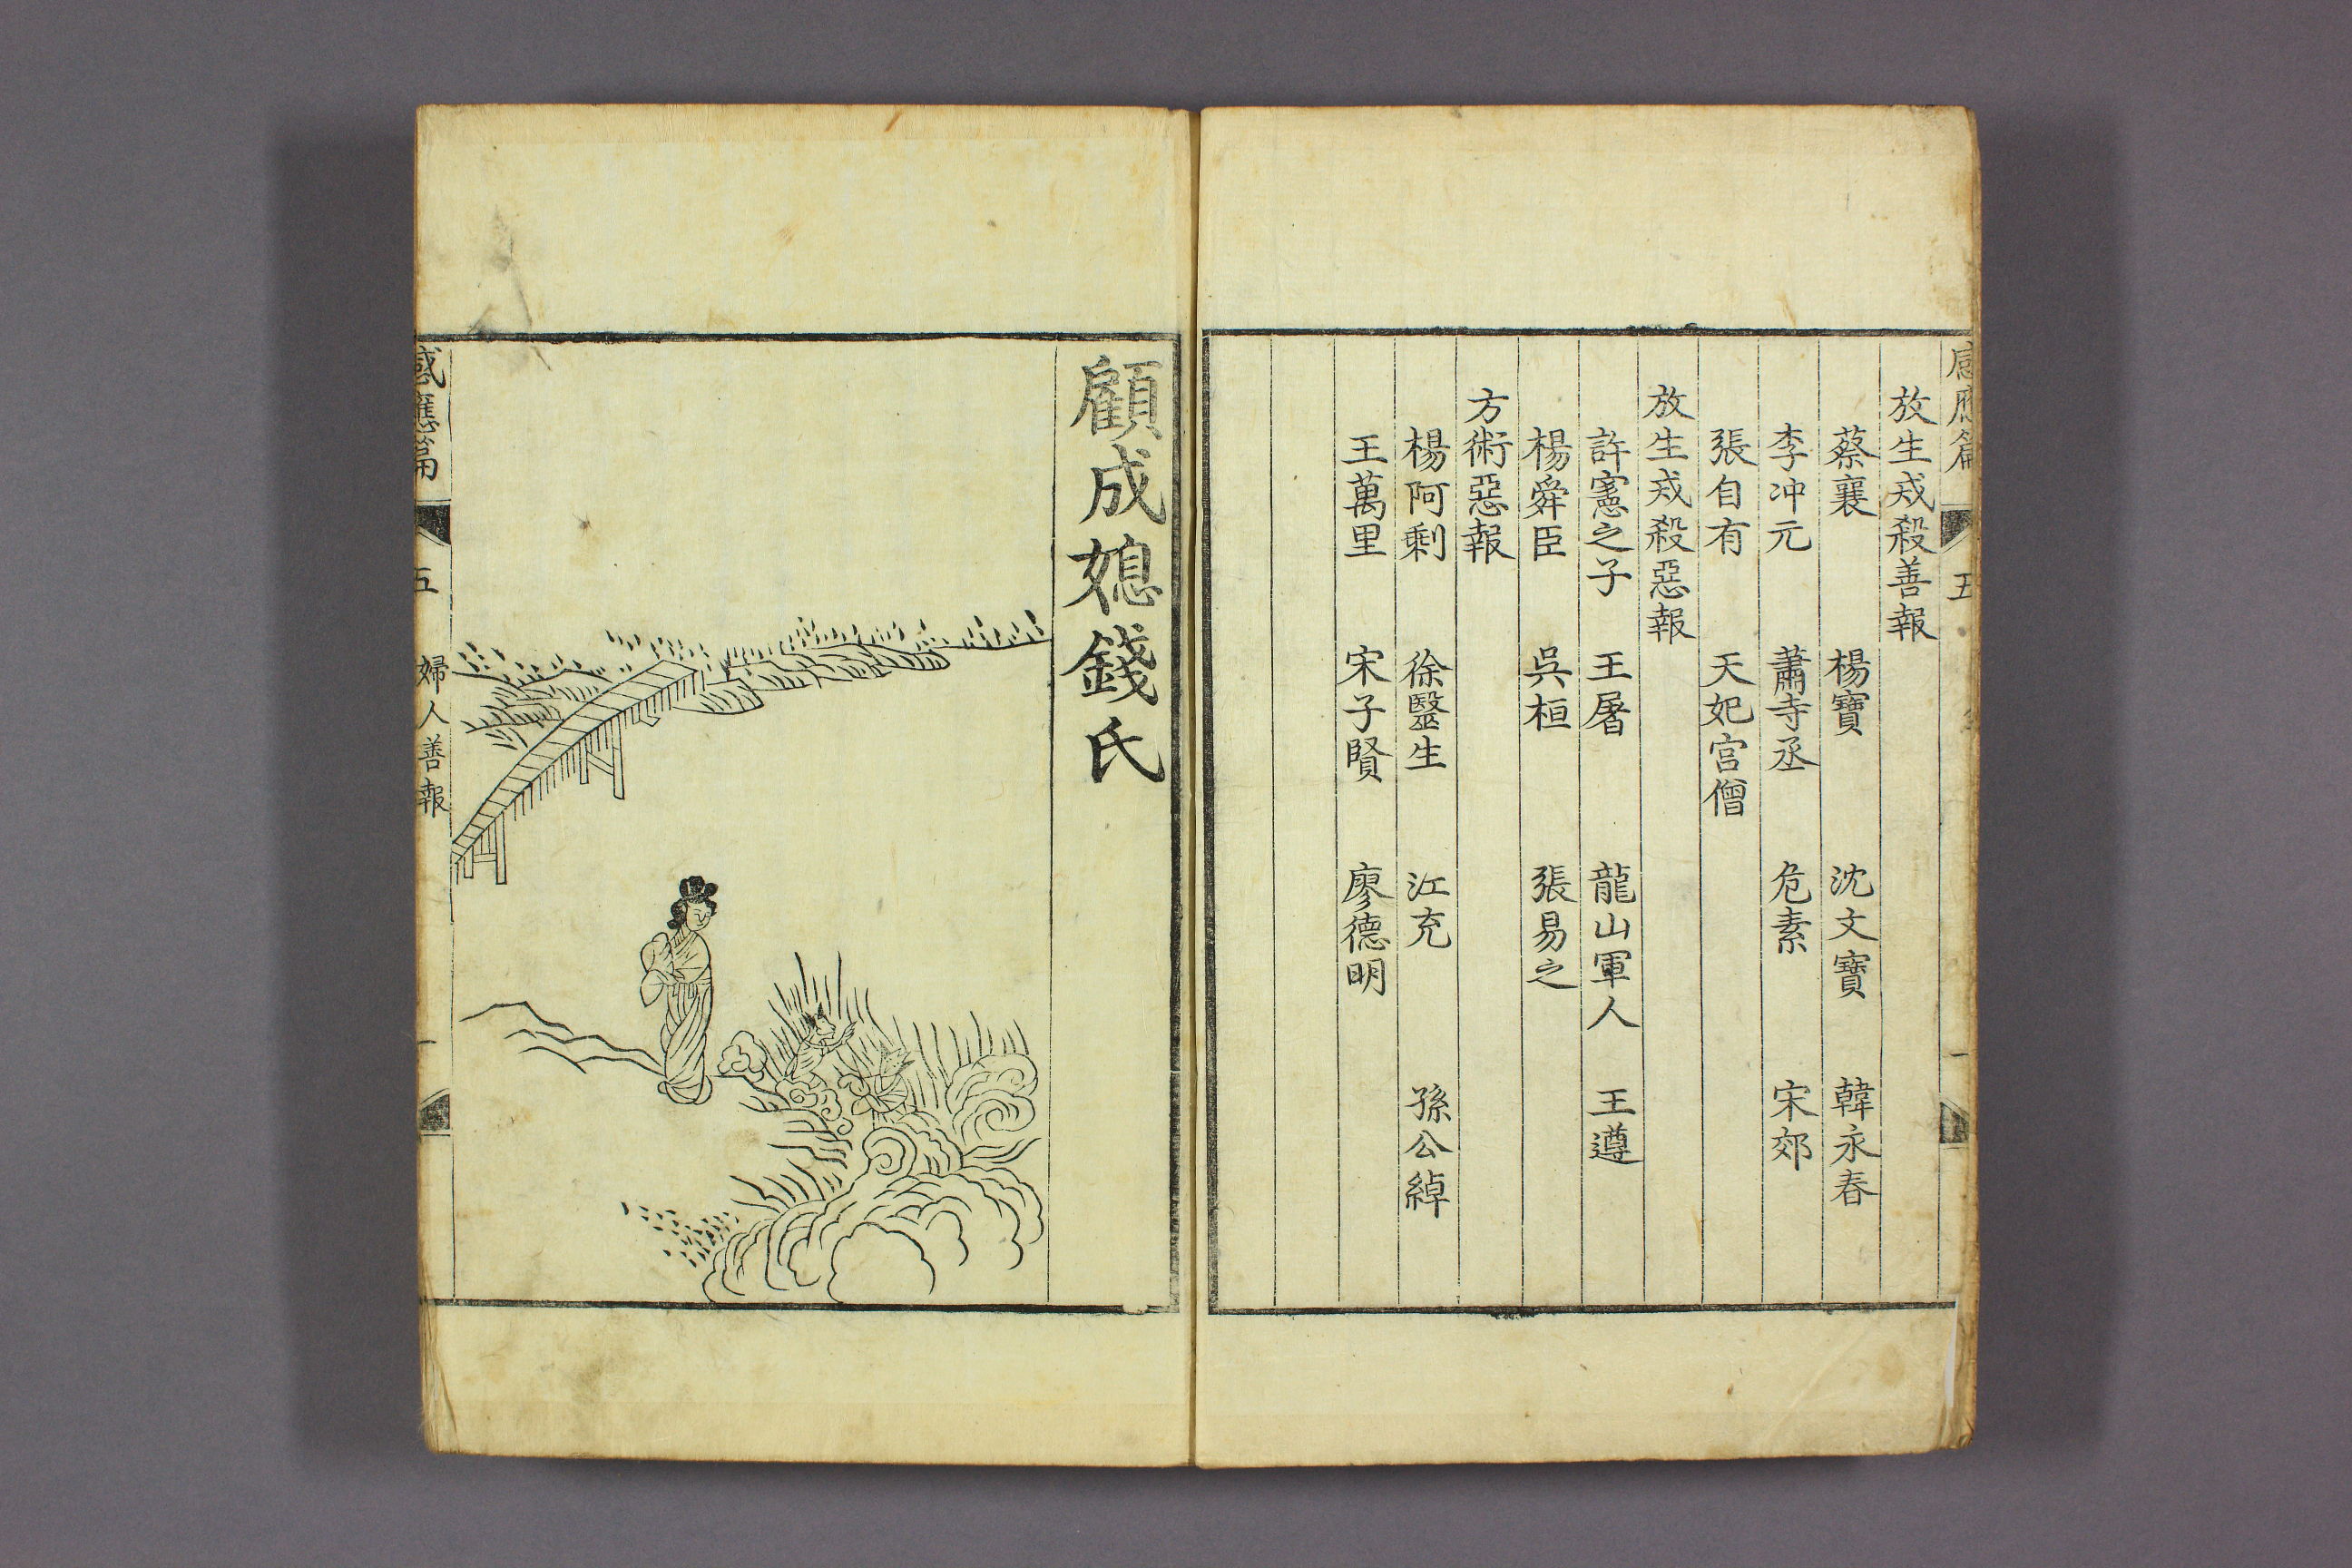 感應篇 五 一
放生戒殺善報
蔡襄 楊寶 沈文寶 韓永春
李冲元 蕭寺丞 危素 宋郊
張自有 天妃宮僧
放生戒殺惡報
許憲之子 王屠 龍山軍人 王遵
楊舜臣 吳桓 張易之
方術惡報
楊阿剩 徐毉生 江充 孫公綽
王萬里 宋子賢 廖德明
顧成媳錢氏
感應篇 五 婦人善報 一